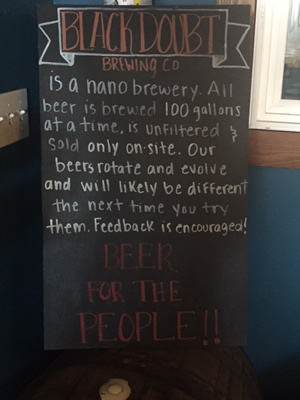 BLACK DOUBT
BREWING CO
is a nano brewery. All
beer is brewed 100 gallons
at a time, is unfiltered &
sold only on-site. Our
beers rotate and evolve
and will likely be different
the next time you try
them. Feedback is encouraged!
BEER
FOR THE
PEOPLE!!